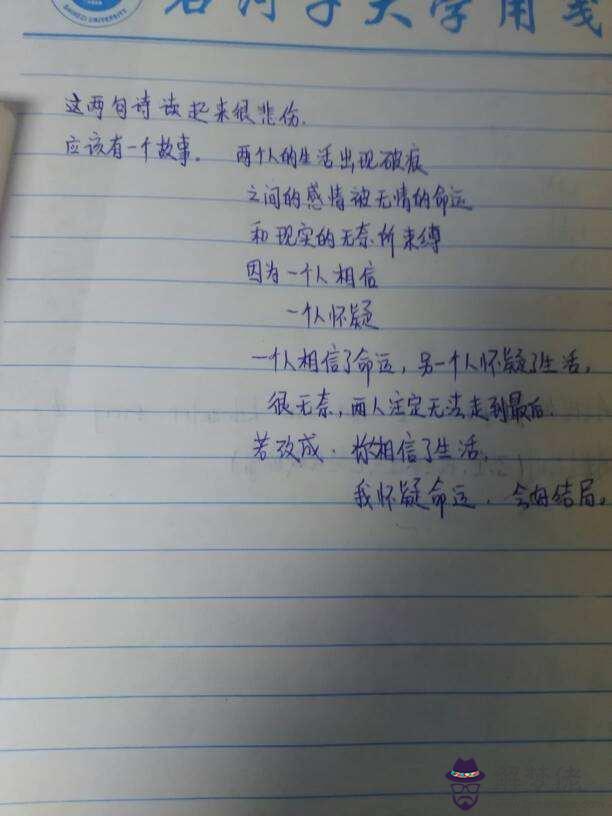 SHIHEZI UNIVERSITY
石河子大学用笺
这两句诗读起来很悲伤.
应该有一个故事。 两个人的生活出现破痕
之间的感情被无情的命运
和现实的无奈所束缚
因为一个人相信
一个人怀疑
一个人相信了命运，另一个人怀疑了生活，
很无奈，两人注定无法走到最后.
若改成. 你相信了生活，
我怀疑命运. 会有结局。
解梦佬